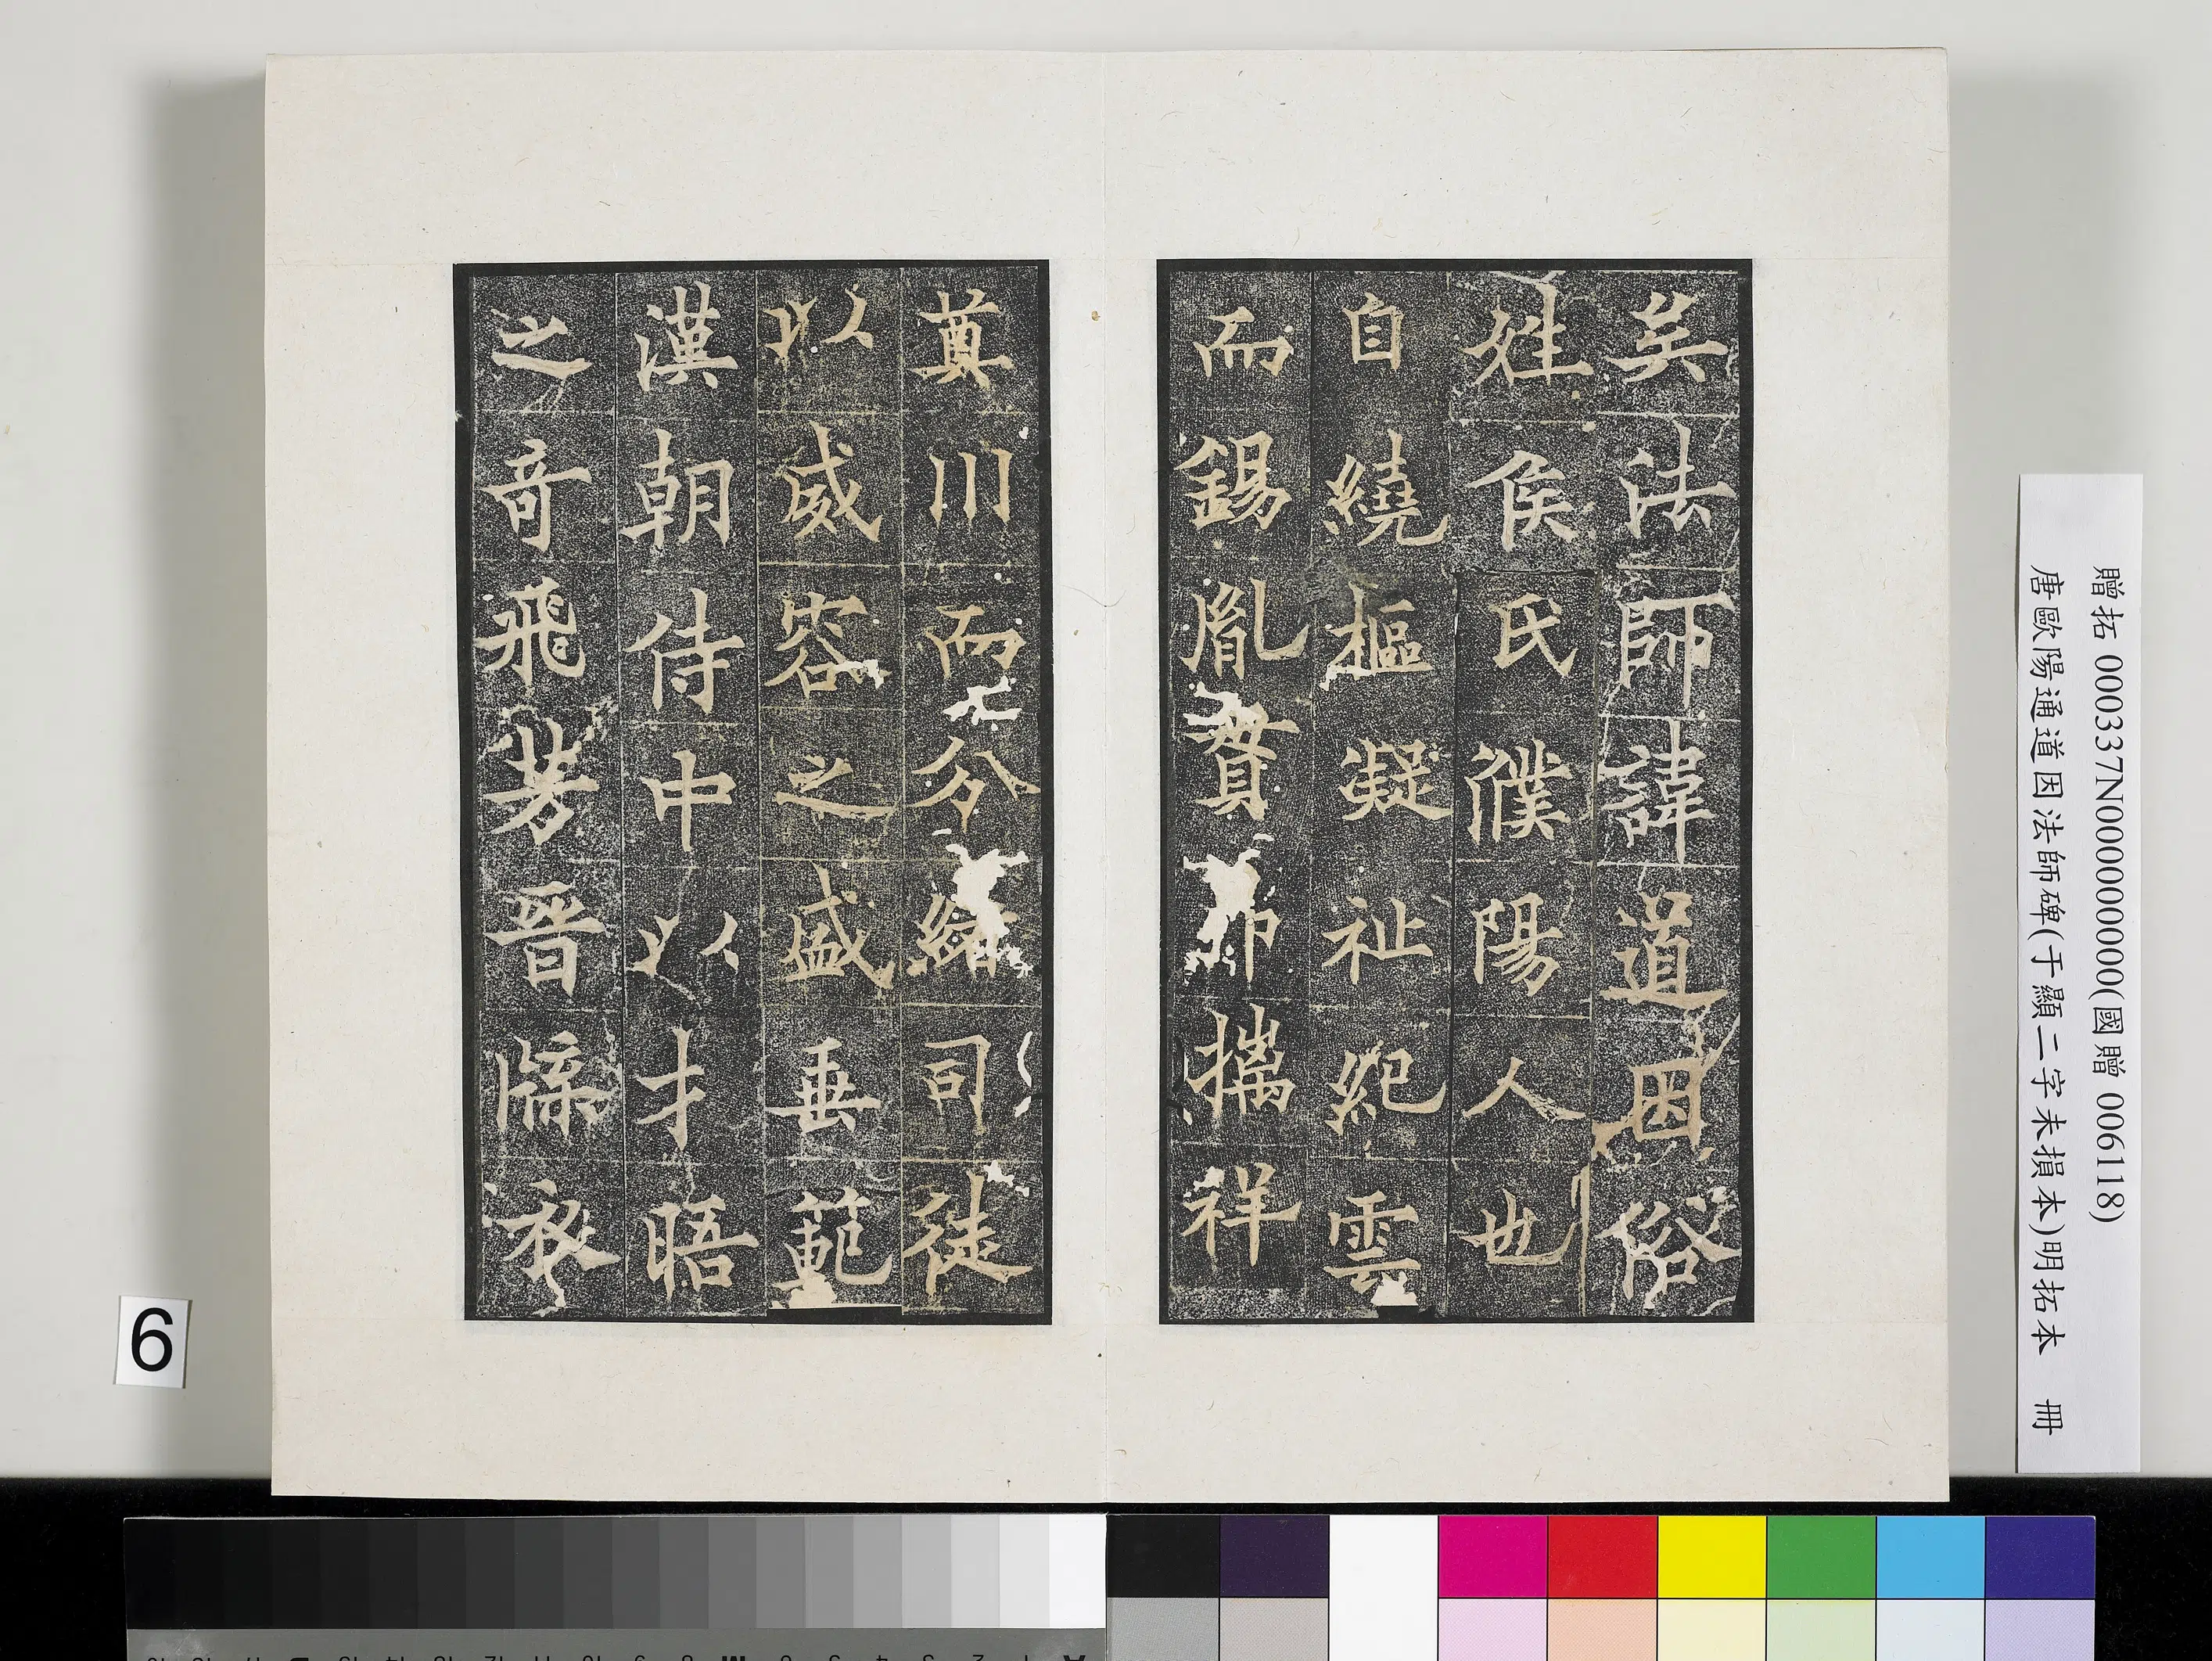 贈拓 000337N000000000(國贈 006118)
唐歐陽通道因法師碑(于顯二字未損本)明拓本 冊
矣法師諱道因俗
姓侯氏濮陽人也
自繞樞凝祉紀雲
而錫胤賁帛㩗祥
奠川而分緒司徒
以威容之盛垂範
漢朝侍中以才晤
之奇飛芳晉牒衣
6